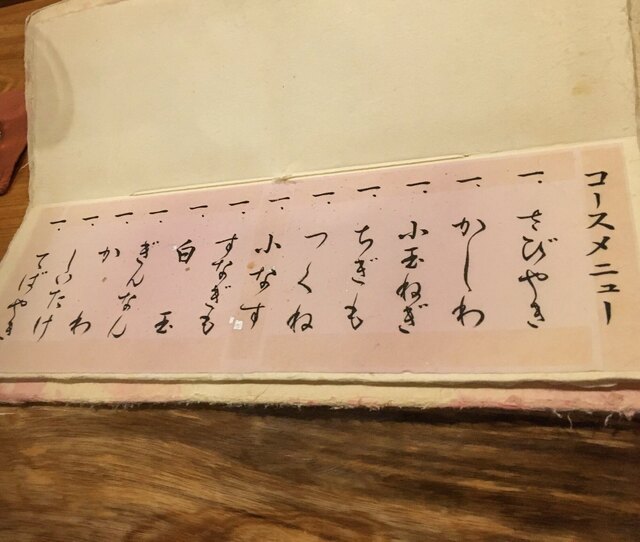 コースメニュー
一、さびやき
一、かしわ
一、小玉ねぎ
一、ちぎも
一、つくね
一、小なす
一、すなぎも
一、白玉
一、ぎんなん
一、かわ
一、しいたけ
一、てばやき